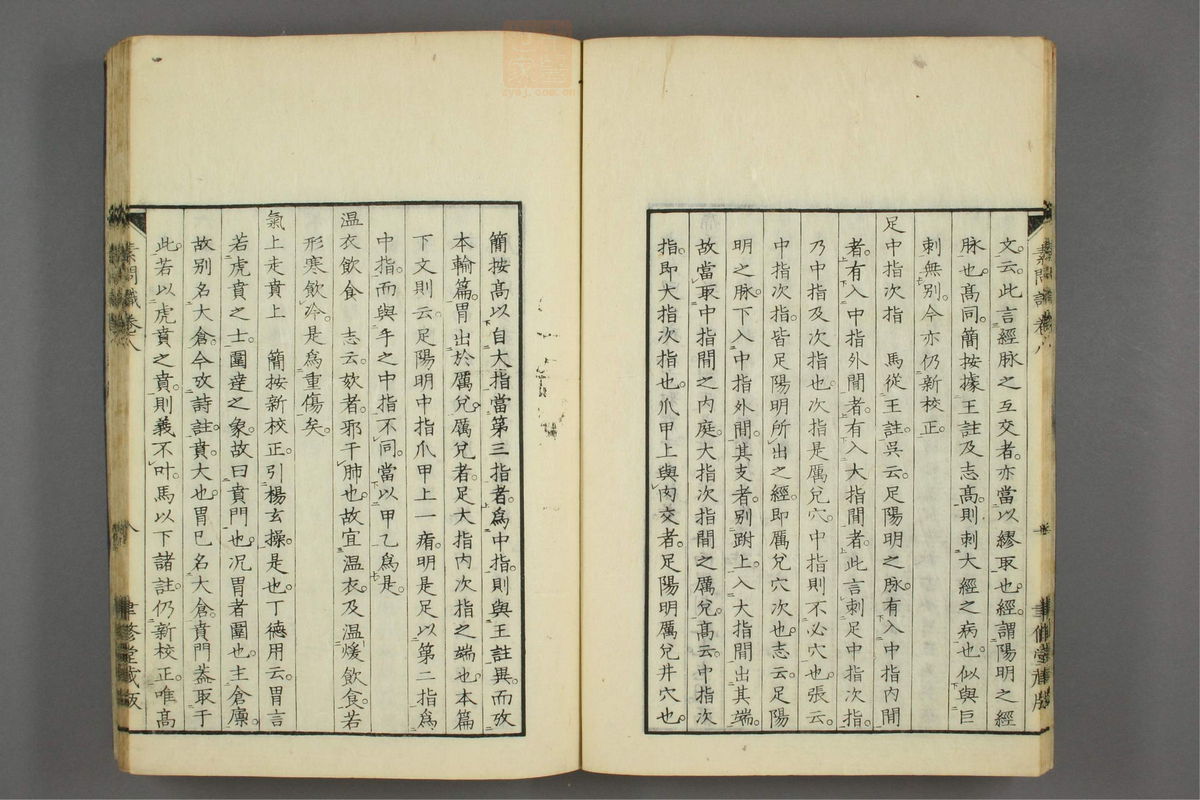 文云此言經脉之互交者亦當以繆取也經謂陽明之經
脉也高同簡按據王註及志高則刺大經之病也似與巨
刺無別今亦仍新校正
足中指次指　馬從王註吳云足陽明之脉有入中指內間
者有入中指外間者有入大指間者此言刺足中指次指
乃中指及次指也次指是厲兌穴中指則不必穴也張云
中指次指皆足陽明所出之經即厲兌穴次也志云足陽
明之脉下入中指外間其支者別跗上入大指間出其端
故當取中指間之內庭大指次指間之厲兌高云中指次
指即大指次指也爪甲上與肉交者足陽明厲兌井穴也
素問識卷八
簡按高以自大指當第三指者爲中指則與王註異而攷
本輸篇胃出於厲兌厲兌者足大指內次指之端也本篇
下文則云足陽明中指爪甲上一痏明是足以第二指爲
中指而與手之中指不同當以甲乙爲是
温衣飲食　志云欬者邪干肺也故宜温衣及温煖飲食若
形寒飲冷是爲重傷矣
氣上走賁上　簡按新校正引楊玄操是也丁德用云胃言
若虎賁之士圍達之象故曰賁門也况胃者圍也主倉廩
故别名大倉今攷詩註賁大也胃已名大倉賁門蓋取于
此若以虎賁之賁則義不叶馬以下諸註仍新校正唯高
素問識卷八
八
聿修堂藏版